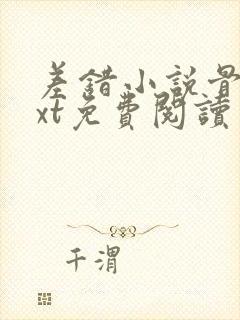 差錯小説骨
xt免費閱讀
千渭